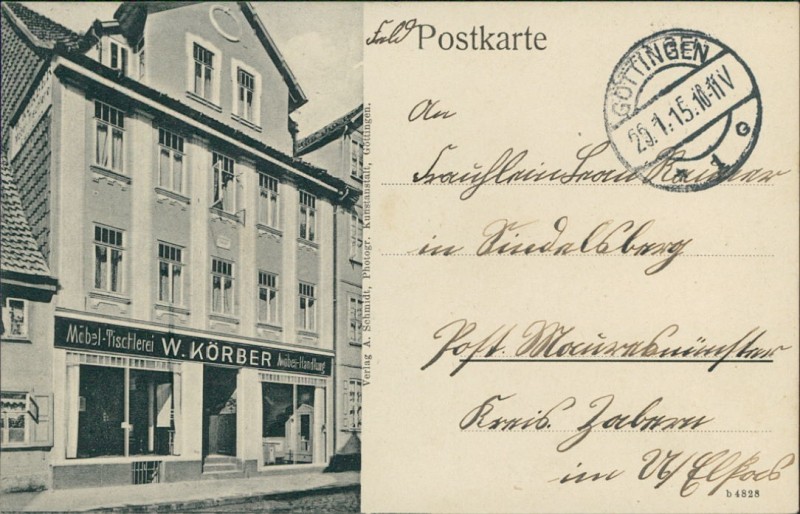 Möbel-Tischlerei W. KÖRBER Möbel-Handlung
Verlag A. Schmidt, Photogr. Kunstanstalt, Göttingen.
Feld Postkarte
GÖTTINGEN
29.1.15.10-11V
* 1 c
An
Fräuhlein
in Sindelsberg
Post. Mauresmünster
Kreis. Zabern
im U/Elsas
b 4828